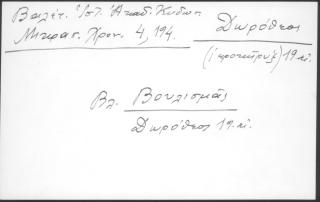 Βαλέτ. Ἱστ. Ἀκαδ. Κυδων.
Μικρασ. Χρον. 4, 194.
Δωρόθεος
(ἱεροκήρυξ) 19 αἰ.
Βλ. Βουλισμᾶς
Δωρόθεος 19 αἰ.